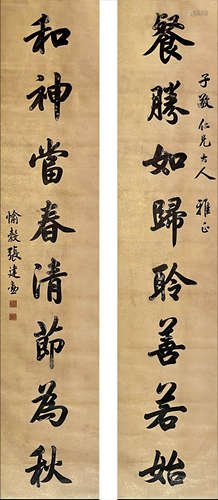 子敬仁兄大人雅正
餐勝如歸聆善若始
和神當春清節為秋
愉穀張建勳